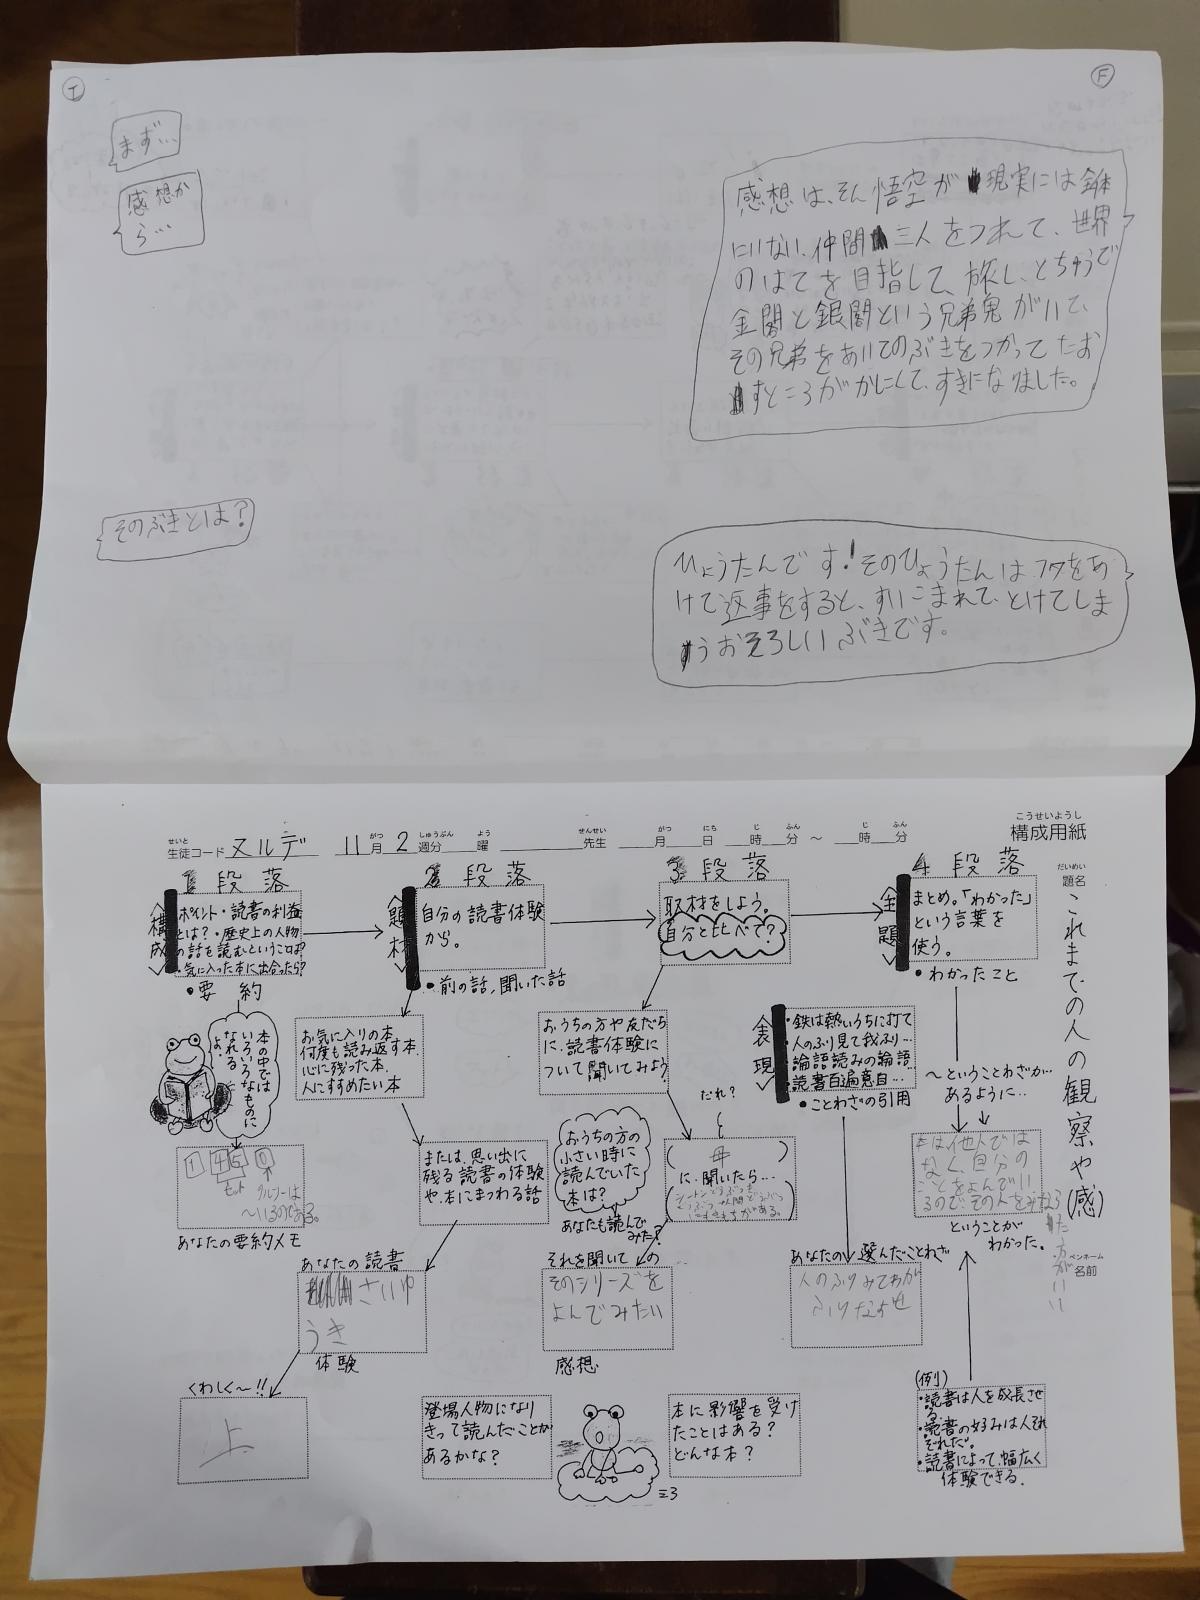 I
F
まず…
感想か
ら…
感想は、そん悟空が現実には全体
にいない、仲間三人をつれて、世界
のはてを目指して、旅し、とちゅうで
金閣と銀閣という兄弟鬼がいて、
その兄弟をあいてのぶきをつかってたお
すところがかにくて、すきになりました。
そのぶきとは?
ひょうたんです!そのひょうたんはフタをあ
けて返事をすると、すいこまれて、とけてしま
うおそろしいぶきです。
せいと
生徒コード ヌルデ 11月 2週分 曜 先生 月 日 時 分 ～ 時 分
がつ しゅうぶん よう せんせい がつ にち じ ふん じ ふん
こうせいようし
構成用紙
だいめい
題名
これまでの人の観察や(感)
ペンホーム
名前
1段落
〈構成〉
ポイント・読書の利益
とは?・歴史上の人物
の話を読むということは?
・気に入った本に出合ったら?
●要約
本の中では
いろいろなものに
なれる
よ.
1 4 5 0
セット
あなたの要約メモ
2段落
〈題材〉
自分の読書体験
から。
●前の話,聞いた話
お気に入りの本
何度も読み返す本
心に残った本.
人にすすめたい本
または、思い出に
残る読書の体験
や、本にまつわる話
あなたの読書
さいゆ
うき
体験
くわしく～!!
上
3段落
取材をしよう。
自分と比べて?
おうちの方や友だち
に、読書体験に
ついて聞いてみよう
だれ?
おうちの方の
小さい時に
読んでいた
本は?
あなたも読んで
みた?
(母)
に、聞いたら…
それを聞いての
そのシリーズを
よんでみたい
感想
登場人物になり
きって読んだことが
あるかな?
本に影響を受け
たことはある?
どんな本?
4段落
〈主題〉
まとめ。「わかった」
という言葉を
使う。
●わかったこと
〈表現〉
・鉄は熱いうちに打て
・人のふり見て我ふり…
・論語読みの論語…
・読書百遍意自…
●ことわざの引用
～ということわざが…
あるように…
本は他人では
なく、自分の
ことをよんでい
るので、その人をみならっ
た方がいい
ということが
わかった。
あなたの選んだことわざ
人のふりみてわが
ふりなおせ
(例)
・読書は人を成長させ
る.
・読書の好みは人それ
ぞれだ。
・読書によって、幅広く
体験できる.